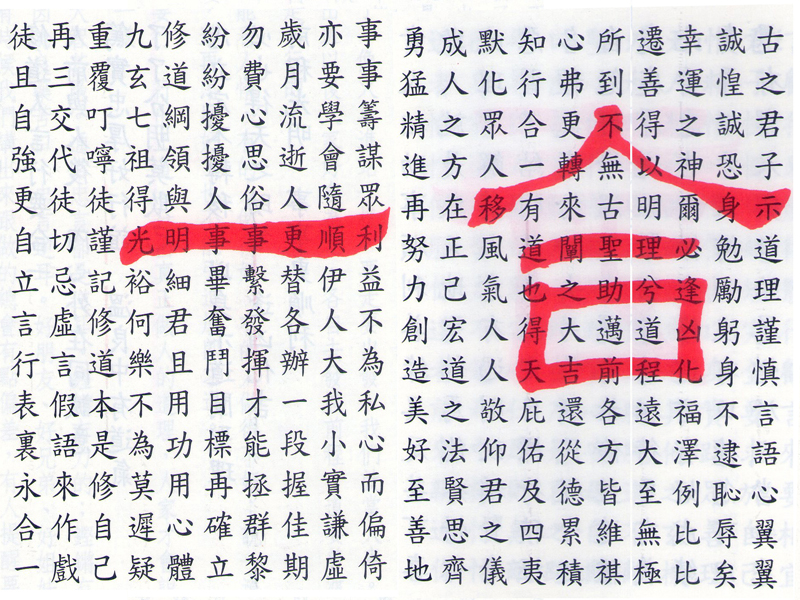 古之君子示道理謹慎言語心翼翼
誠惶誠恐身勉勵躬身不逮恥辱矣
幸運之神爾必逢凶化福澤例比比
遷善得以明理兮道程遠大至無極
所到不無古聖助邁前各方皆維祺
心弗更轉來闡之大吉還從德累積
知行合一有道也得天庇佑及四夷
默化眾人移風氣人人敬仰君之儀
成人之方在正己宏道之法賢思齊
勇猛精進再努力創造美好至善地
事事籌謀眾利益不為私心而偏倚
亦要學會隨順伊人大我小實謙虛
歲月流逝人更替各辦一段握佳期
勿費心思俗事繫發揮才能拯群黎
紛紛擾擾人事畢奮鬥目標再確立
修道綱領與明細君且用功用心體
九玄七祖得光裕何樂不為莫遲疑
重覆叮嚀徒謹記修道本是修自己
再三交代徒切忌虛言假語來作戲
徒且自強更自立言行表裏永合一
合一